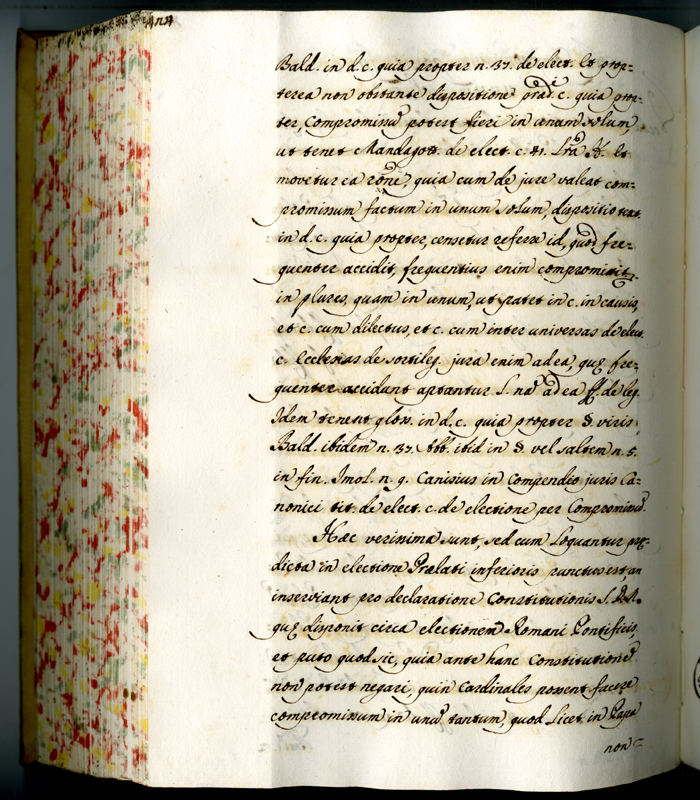 Bald. in d. c. quia propter n. 37. de elect. Et prop=
terea non obstante dispositione præd. c. quia prop=
ter, Compromissũ potest fieri in unum solum,
ut tenet Mandagott. de elect. c. 41. Et
movetur ea rõne, quia cum de jure valeat com=
promissum factum in unum solum, dispositio text.
in d. c. quia propter, censetur referre id, quod fre=
quenter accidit, frequentius enim compromittit.
in plures, quam in unum, ut patet in c. in causis,
et c. cum dilectus, et c. cum inter universas de elect.
c. Ecclesias de sortileg. jura enim ad ea, quę fre=
quenter accidunt aptantur l. nã ad ea ff. de leg.
Idem tenent gloss. in d. c. quia propter §. viris
Bald. ibidem n. 37. Abb. ibid in §. vel saltem n. 5.
in fin. Imol. n. 9. Canisius in Compendio juris Ca=
nonici tit. de elect. c. de electione per Compromissũ.
Hæc verissima sunt, sed cum loquantur prę=
dicta in electione Prælati inferioris punctus est, an
inserviant pro declaratione Constitutionis S. D. N.
quę disponit circa electionem Romani Pontificis,
et puto quod sic, quia ante hanc Constitutionẽ
non potest negari, quin Cardinales possent facere
compromissum in unũ tantum, quod licet in Papa
non